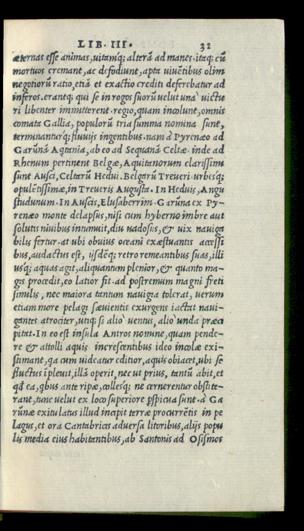 LIB. III. 31
æternas esse animas, uitamq; alterā ad manes. itaq; cū
mortuos cremant, ac defodiunt, apta uiuētibus olim
negotiorū ratio, etiā et exactio crediti deferebatur ad
inferos. erantq; qui se in rogos suorū uelut una uictu
ri libenter immitterent. regio, quam incolunt, omnis
comata Gallia, populorū tria summa nomina sunt,
terminanturq; fluuijs ingentibus. nam à Pyrenæo ad
Garūnā Aqtania, ab eo ad Sequanā Celtæ. inde ad
Rhenum pertinent Belgæ, Aquitanorum clarissimi
sunt Ausci, Celtarū Hedui. Belgarū Treueri. urbesq;
opulētissimæ, in Treueris Augusta. In Heduis, Augu
studunum. In Auscis, Elusaberrim. Garūna ex Py
renæo monte delapsus, nisi cum hyberno imbre aut
solutis niuibus intumuit, diu uadosus, & uix nauiga
bilis fertur. at ubi obuius oceani exæstuantis accessi
bus, adauctus est, ijsdēq; retro remeantibus suas, illi
usq; aquas agit, aliquantum plenior, & quanto ma-
gis procedit, eo latior fit. ad postremum magni freti
similis, nec maiora tantum nauigia tolerat, uerum
etiam more pelagi sæuientis exurgens iactat naui-
gantes atrociter, utiq; si alio uentus, alio unda præci
pitat. In eo est insula Antros nomine, quam pende-
re & attolli aquis increscentibus ideo incolæ exi-
stimant, qa cum uideatur editior, aquis obiacet, ubi se
fluctus īpleuit, illā operit, nec ut prius, tantū abit, et
qd ea, qbus ante ripæ, collesq; ne cernerentur obstite-
rant, tunc uelut ex loco superiore pspicua sunt. à Ga
rūnæ exitu latus illud incipit terræ procurrētis in pe
lagus, et ora Cantabricis aduersa litoribus, alijs popu
lis media eius habitantibus, ab Santonis ad Osismos